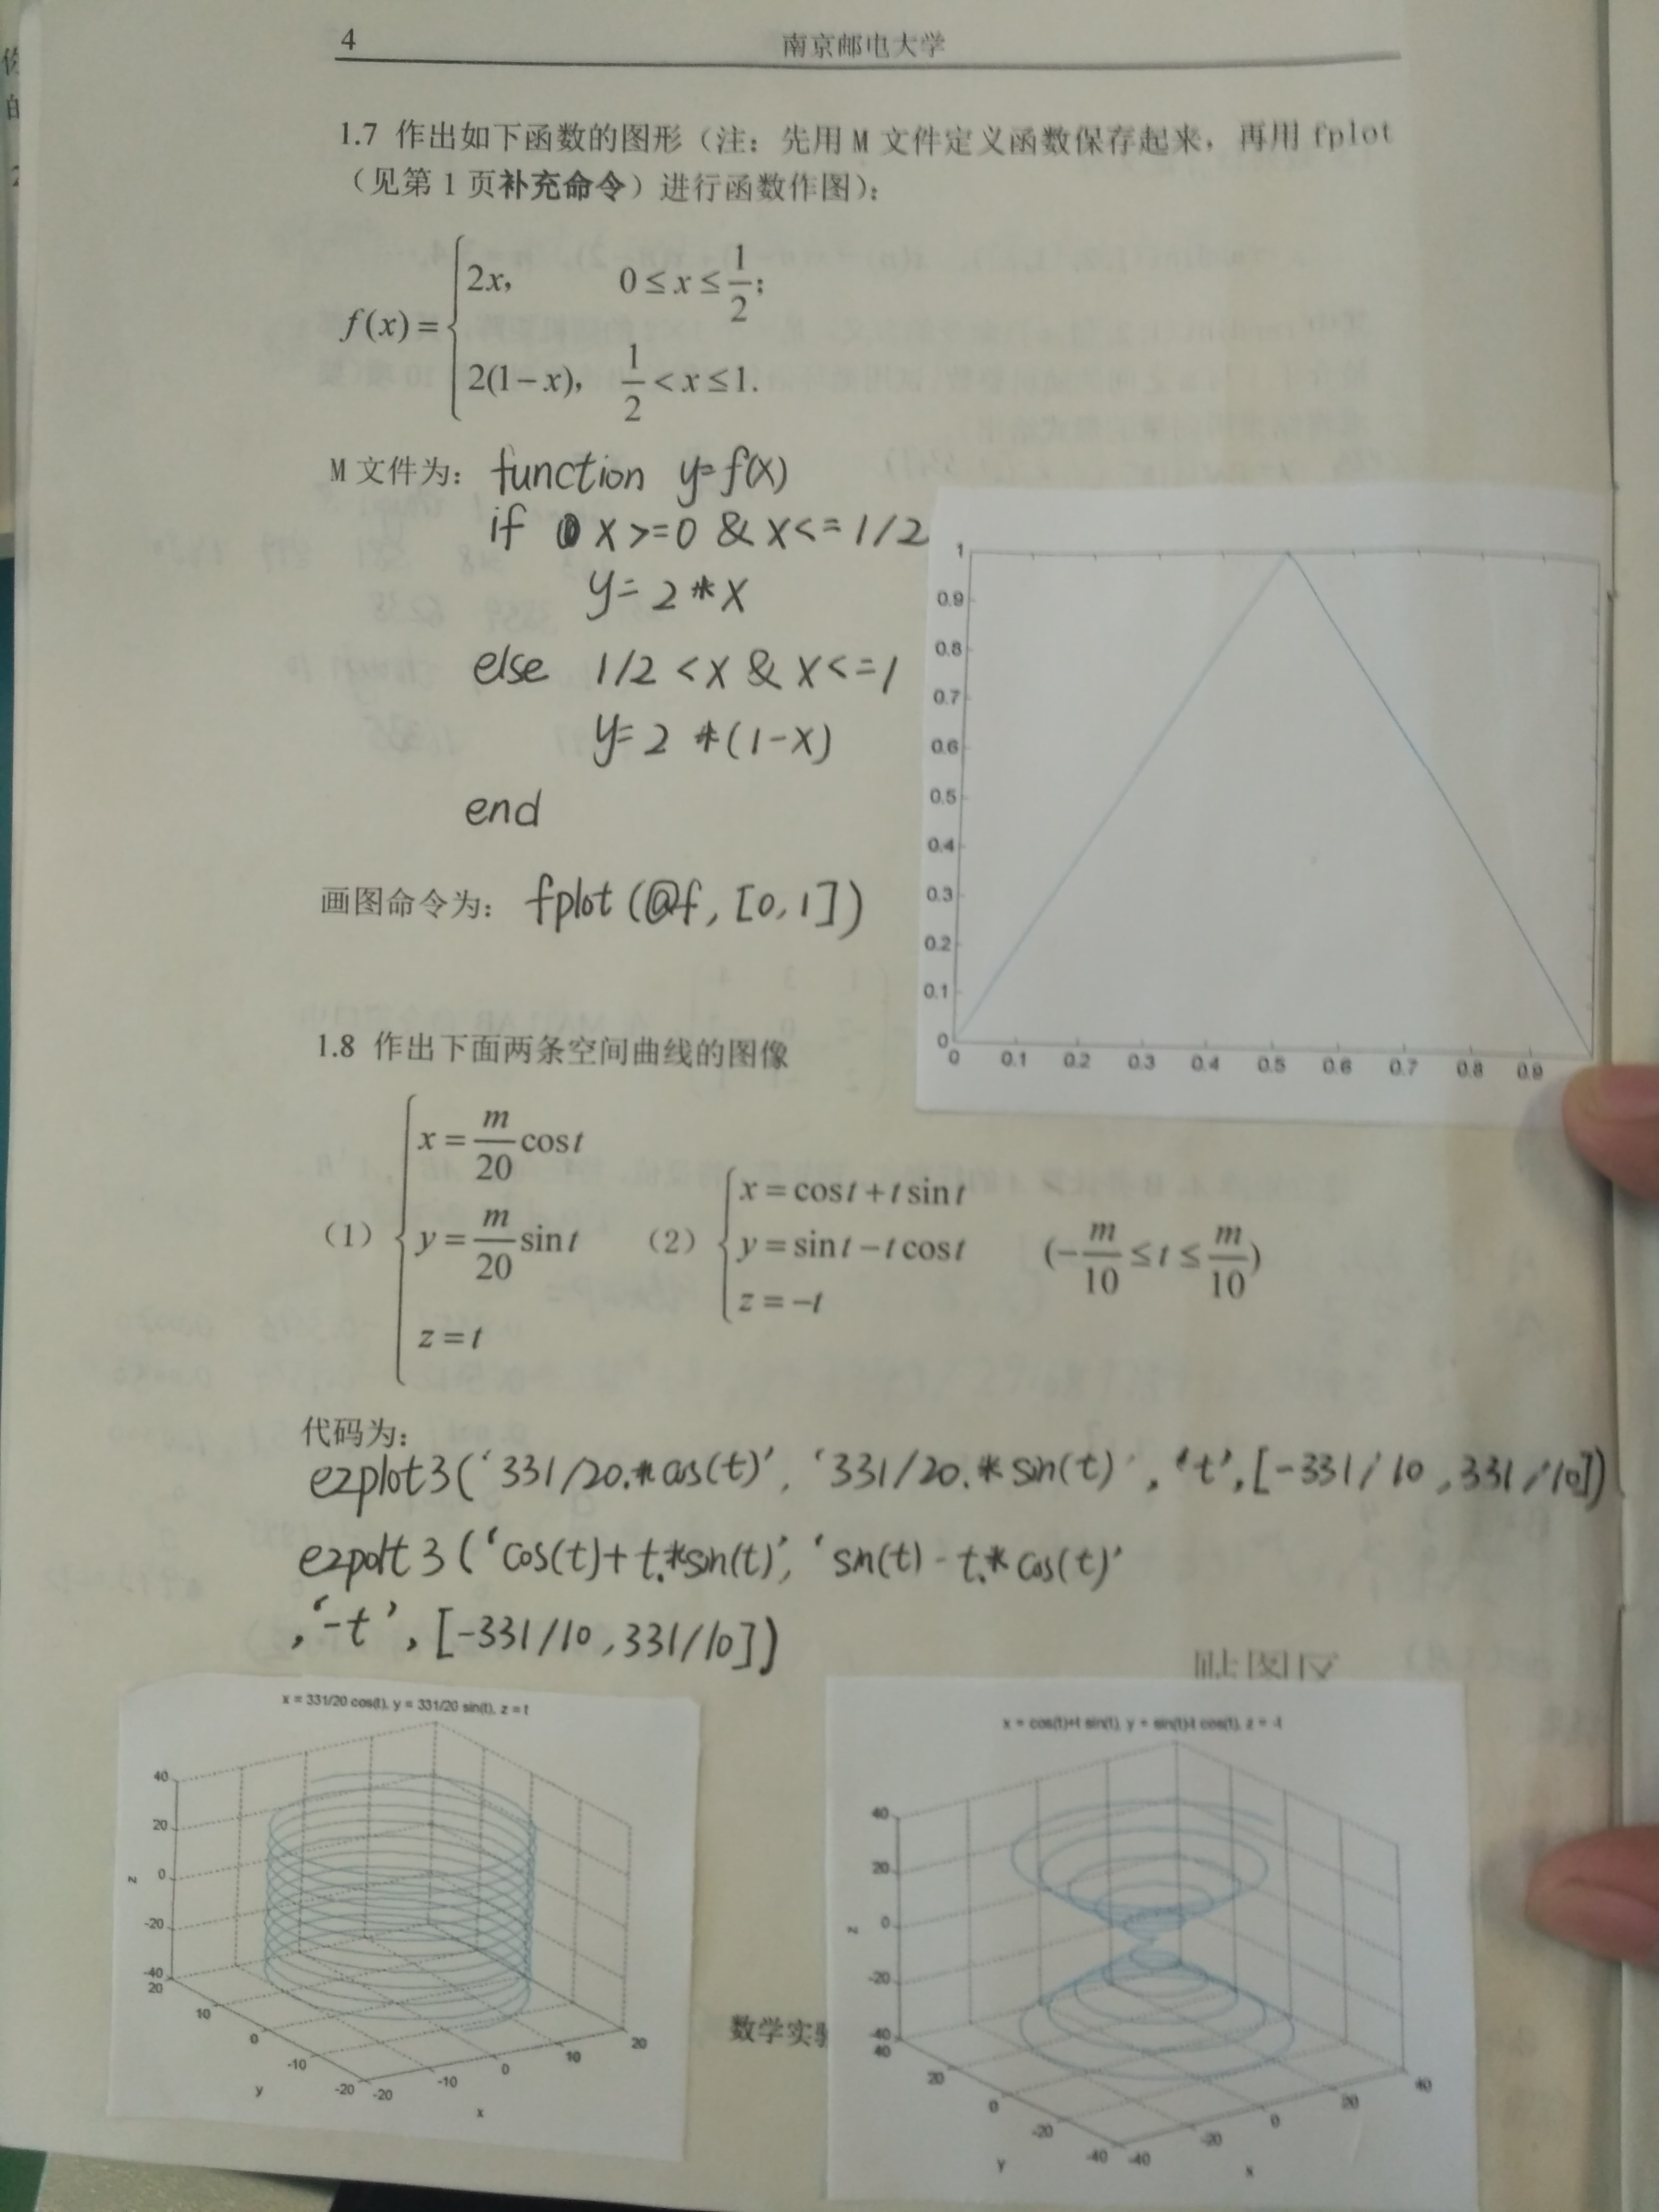 4 南京邮电大学
1.7 作出如下函数的图形（注：先用 M 文件定义函数保存起来，再用 fplot
（见第 1 页补充命令）进行函数作图）：
f(x) = { 2x, 0 ≤ x ≤ 1/2;
2(1−x), 1/2 < x ≤ 1.
M 文件为： function y=f(x)
if x>=0 & x<=1/2
y=2*x
else 1/2<x & x<=1
y=2*(1-x)
end
画图命令为： fplot(@f,[0,1])
1
0.9
0.8
0.7
0.6
0.5
0.4
0.3
0.2
0.1
0
0 0.1 0.2 0.3 0.4 0.5 0.6 0.7 0.8 0.9
1.8 作出下面两条空间曲线的图像
（1） { x = m/20 cos t
y = m/20 sin t
z = t
（2） { x = cos t + t sin t
y = sin t − t cos t
z = −t
(−m/10 ≤ t ≤ m/10)
代码为：
ezplot3('331/20.*cos(t)','331/20.*sin(t)','t',[-331/10,331/10])
ezpolt3('cos(t)+t.*sin(t)','sin(t)-t.*cos(t)'
,'-t',[-331/10,331/10])
x = 331/20 cos(t), y = 331/20 sin(t), z = t
40
20
0
-20
-40
z
20
10
0
-10
-20
y
-20
-10
0
10
20
x
x = cos(t)+t sin(t), y = sin(t)-t cos(t), z = -t
40
20
0
-20
-40
z
40
20
0
-20
-40
y
-40
-20
0
20
40
x
数学实验